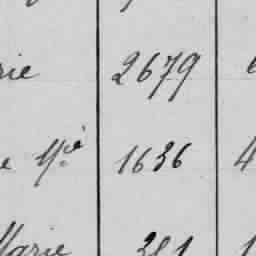 rie 2679
e Mie 1636 4
Marie 381 1